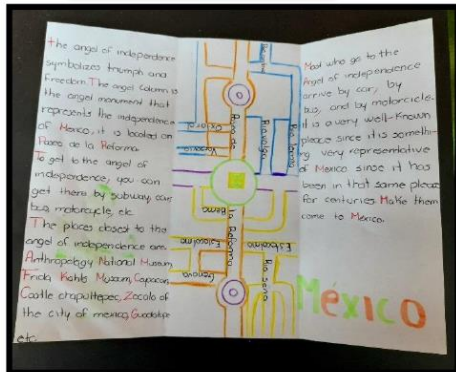 the angel of independence
symbolizes triumph and
freedom. The angel column is
the angel monument that
represents the independence
of Mexico, it is located on
Paseo de la Reforma
To get to the angel of
independence, you can
get there by subway, car
bus, motorcycle, etc
The places closest to the
angel of independence are
Anthropology National Museum
Frida Kahlo Museum, Coyoacan
Castle chapultepec, Zocalo of
the city of mexico, Guadalupe
etc
Paseo de
la Reforma
Oxford
Varsovia
Rio Volga
Berna
Estocolmo
Estocolmo
Genova
Rio Sena
Most who go to the
Angel of independence
arrive by car, by
bus, and by motorcycle.
it is a very well-Known
please since it is somethi-
ng very representative
of Mexico since it has
been in that same please
For centuries Make them
come to Mexico.
México